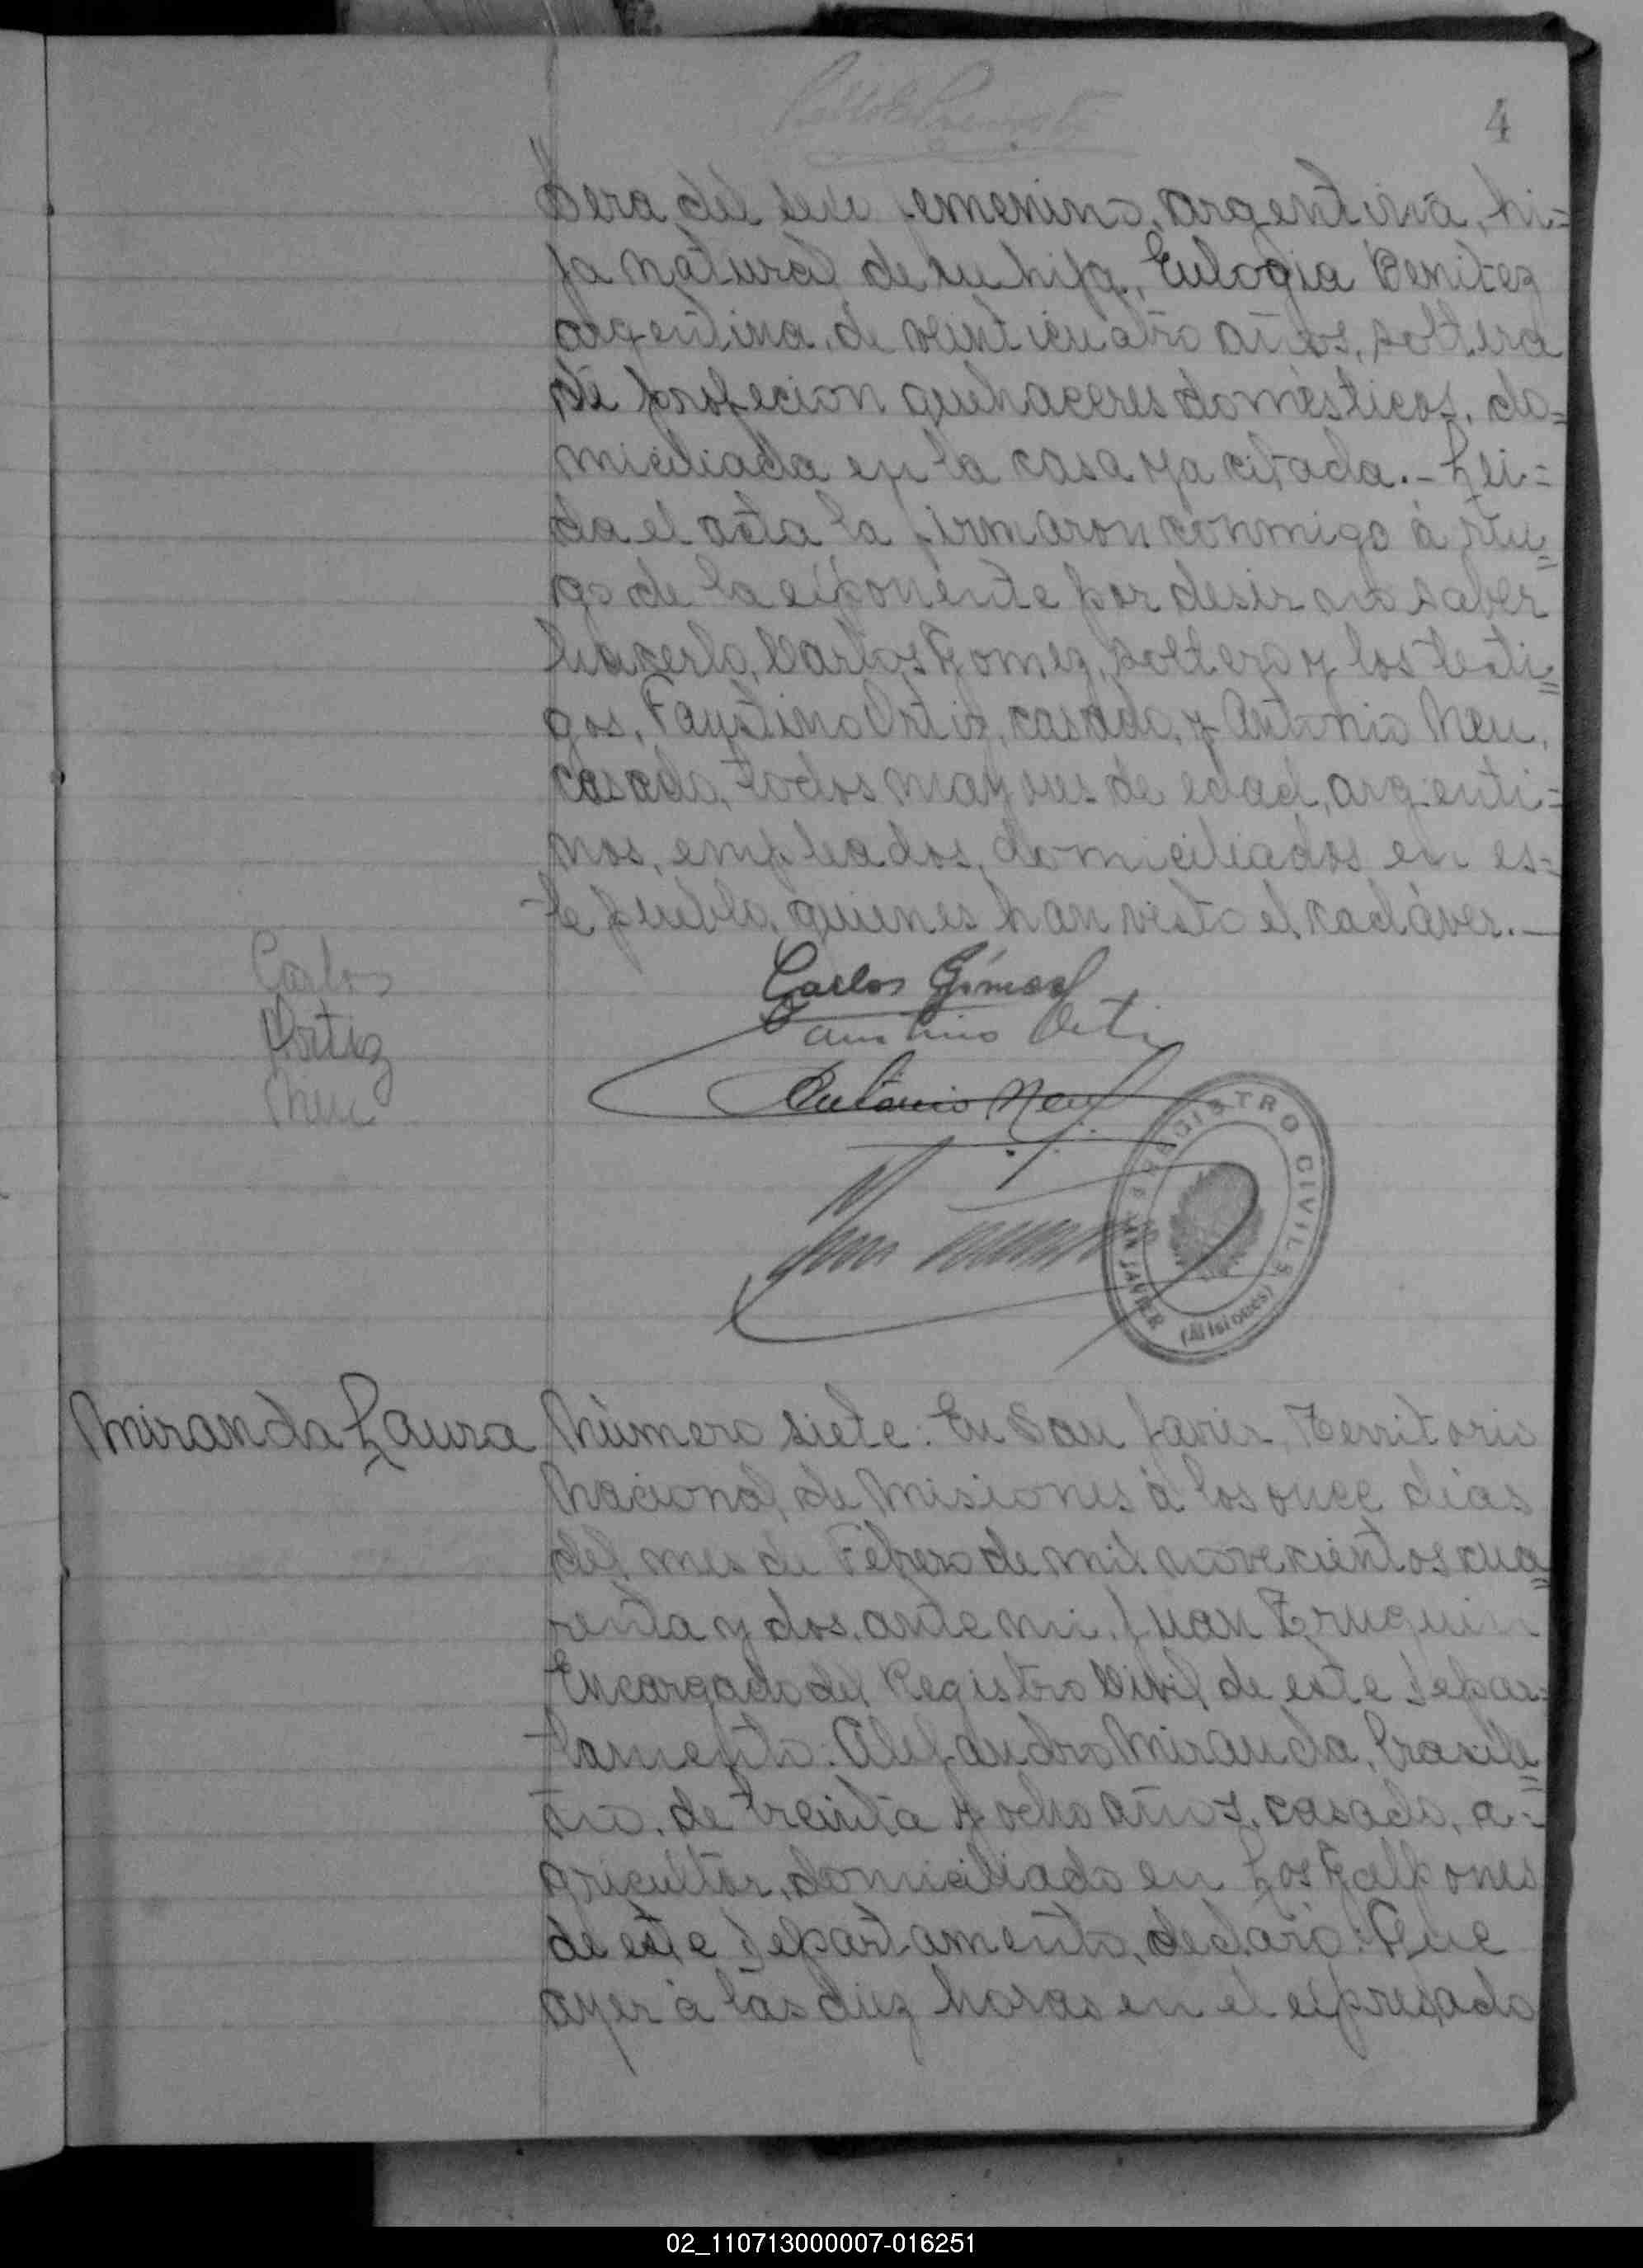 4
era del sexo femenino, argentina, hi=
ja natural de su hija, Eulogia Benitez
argentina, de veinticuatro años, soltera
de profecion quehaceres domésticos, do=
miciliada en la casa ya citada.- Lei=
da el acta la firmaron conmigo á rue=
go de la exponente por desir no saber
hacerlo, Carlos Gomez, soltero y los testi=
gos, Faustino Ortiz, casado, y Antonio Neu,
casado, todos mayores de edad, argenti=
nos, empleados, domiciliados en es=
te pueblo, quienes han visto el cadáver.—
Carlos Gómez
Carlos
Faustino Orti
Ortiz
Antonio Neu
Neu
REGISTRO CIVIL
SAN JAVIER
(Misiones)
Miranda Laura
Número siete: En San Javier, Territorio
Nacional de Misiones á los once dias
del mes de Febrero de mil novecientos cua=
renta y dos, ante mi, Juan Truquin
Encargado del Registro Civil de este Depar=
tamento: Alejandro Miranda, brasile=
ño, de treinta y ocho años, casado, a=
gricultor, domiciliado en Los Galpones
de este Departamento, declaró: Que
ayer á las diez horas en el expresado
02_110713000007-016251